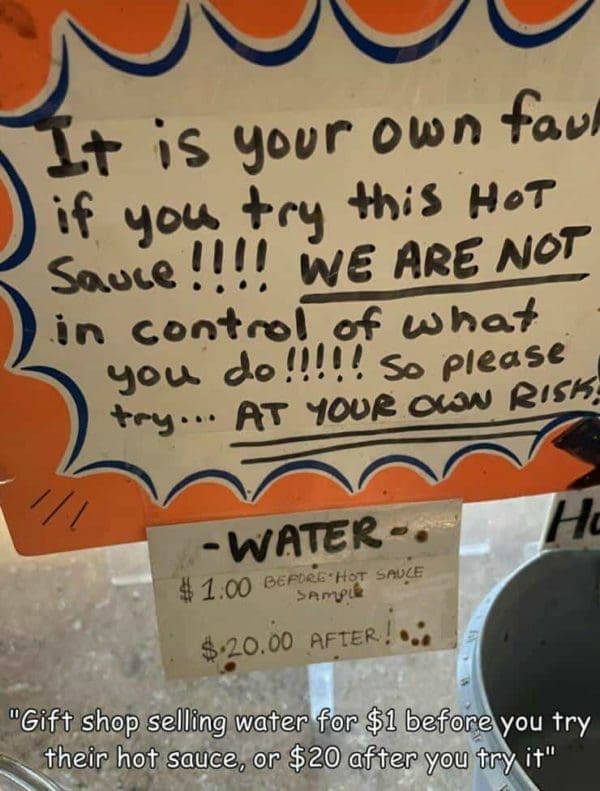 It is your own
if you try this HOT
Sauce!!!! WE ARE NOT
in control of what
you do!!!!! So please
try... AT YOUR OWN RISK!
-WATER-
$1.00 BEFORE HOT SAUCE
SAMPLE
$.20.00 AFTER!
"Gift shop selling water for $1 before you try
their hot sauce, or $20 after you try it"